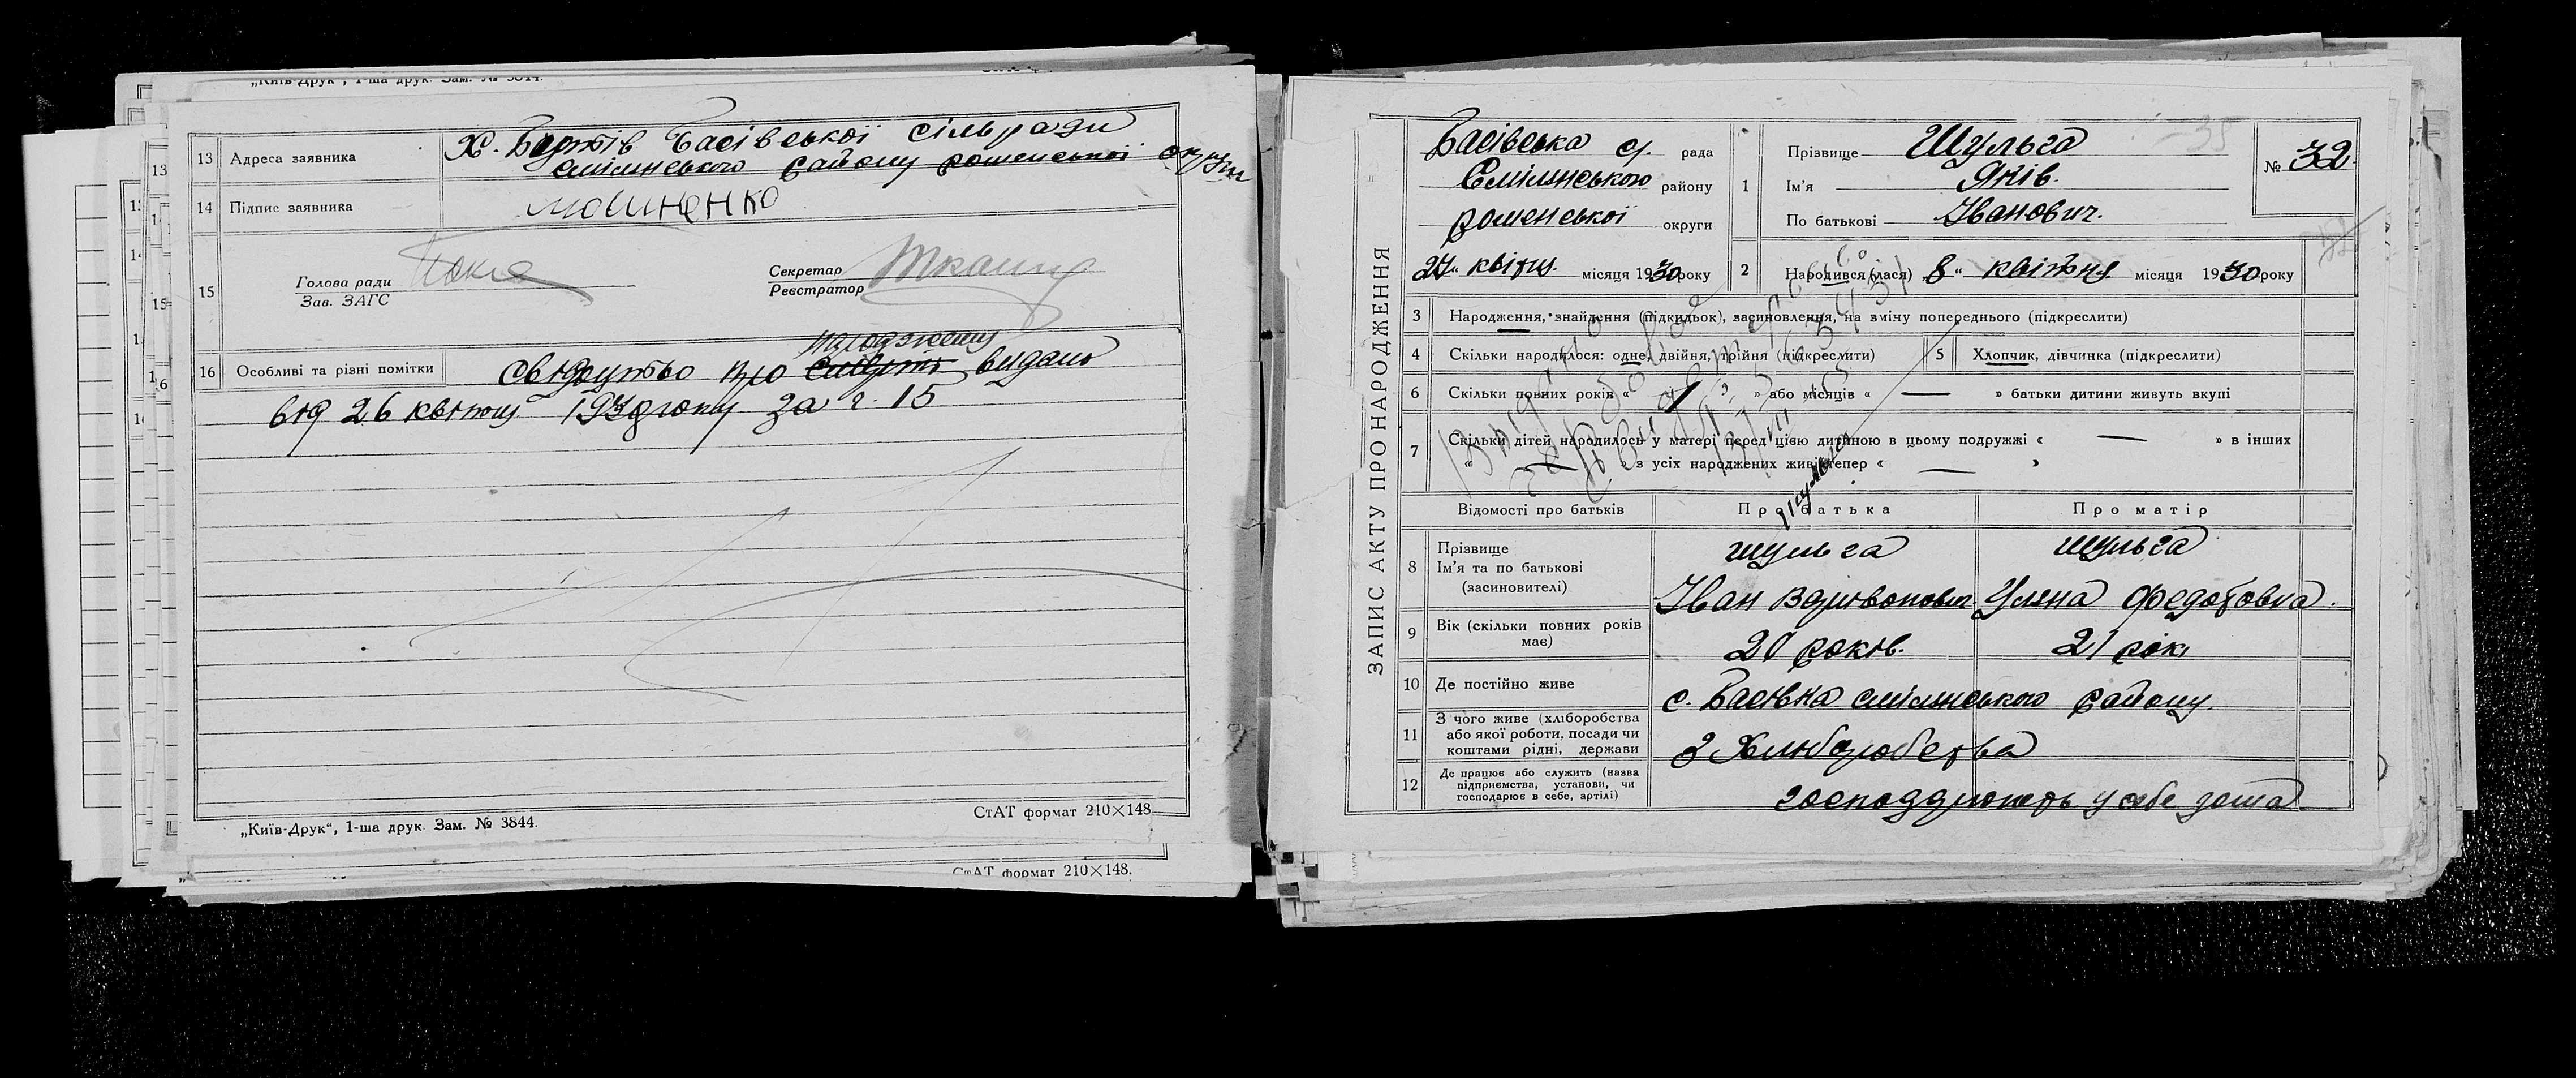 „Київ-Друк“, 1-ша друк. Зам. № 3844.
13 Адреса заявника Х. Басівської сільради
Смілянського району роменської округи
14 Підпис заявника
15 Голова ради
Зав. ЗАГС
Секретар
Реєстратор
народження
16 Особливі та різні помітки Свідоцтво про смерть видано
від 26 квітня 1930 року за г. 15
СтАТ формат 210×148
„Київ-Друк“, 1-ша друк. Зам. № 3844.
СтАТ формат 210×148.
ЗАПИС АКТУ ПРО НАРОДЖЕННЯ
Басівська с. рада
Смілянського району
роменської округи
27 „ квітня місяця 1930 року
1 Прізвище Шульга
Ім'я Яків.
По батькові Іванович.
№ 32.
35
2 Народився (лася) 8 „ квітня місяця 1930 року
3 Народження, знайдення (підкидьок), засиновлення, на зміну попереднього (підкреслити)
4 Скільки народилося: одне, двійня, трійня (підкреслити) 5 Хлопчик, дівчинка (підкреслити)
6 Скільки повних років « 1 » або місяців « — » батьки дитини живуть вкупі
7 Скільки дітей народилось у матері перед цією дитиною в цьому подружжі « — » в інших
« — » з усіх народжених живі тепер « — »
Шульга
Відомості про батьків Про батька Про матір
8 Прізвище шульга шульга
Ім'я та по батькові
(засиновителі) Іван Улена Федотовна.
9 Вік (скільки повних років має) 20 років. 21 рік
10 Де постійно живе с. Басівка смілянського району.
11 З чого живе (хліборобства
або якої роботи, посади чи
коштами рідні, держави з Хліборобства
12 Де працює або служить (назва
підприємства, установи, чи
господарює в себе, артілі) господарюють у себе дома